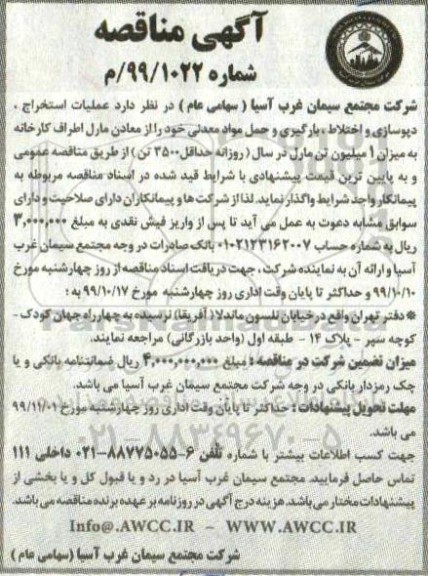 آگهی مناقصه
شماره ۹۹/۱۰۲۲/م
شرکت مجتمع سیمان غرب آسیا ( سهامی عام ) در نظر دارد عملیات استخراج ،
دپوسازی و اختلاط ، بارگیری و حمل مواد معدنی خود را از معادن مارل اطراف کارخانه
به میزان ۱ میلیون تن مارل در سال ( روزانه حداقل ۳۵۰۰ تن ) از طریق مناقصه عمومی
و به پایین ترین قیمت پیشنهادی با شرایط قید شده در اسناد مناقصه مربوطه به
پیمانکار واجد شرایط واگذار نماید. لذا از شرکت ها و پیمانکاران دارای صلاحیت و دارای
سوابق مشابه دعوت به عمل می آید تا پس از واریز فیش نقدی به مبلغ ۳,۰۰۰,۰۰۰
ریال به شماره حساب ۰۱۰۲۱۲۳۱۶۲۰۰۷ بانک صادرات در وجه مجتمع سیمان غرب
آسیا و ارائه آن به نماینده شرکت ، جهت دریافت اسناد مناقصه از روز چهارشنبه مورخ
۹۹/۱۰/۱۰ و حداکثر تا پایان وقت اداری روز چهارشنبه مورخ ۹۹/۱۰/۱۷ به :
* دفتر تهران واقع در خیابان نلسون ماندلا ( آفریقا) نرسیده به چهارراه جهان کودک -
کوچه سپر - پلاک ۱۴ - طبقه اول (واحد بازرگانی) مراجعه نمایند.
میزان تضمین شرکت در مناقصه : مبلغ ۴,۰۰۰,۰۰۰,۰۰۰ ریال ضمانتنامه بانکی و یا
چک رمزدار بانکی در وجه شرکت مجتمع سیمان غرب آسیا می باشد.
مهلت تحویل پیشنهادات : حداکثر تا پایان وقت اداری روز چهارشنبه مورخ ۹۹/۱۱/۰۱
می باشد.
جهت کسب اطلاعات بیشتر با شماره تلفن ۶-۸۸۷۷۵۰۵۵-۰۲۱ داخلی ۱۱۱
تماس حاصل فرمایید. مجتمع سیمان غرب آسیا در رد و یا قبول کل و یا بخشی از
پیشنهادات مختار می باشد. هزینه درج آگهی در روزنامه بر عهده برنده مناقصه می باشد.
Info@.AWCC.IR - WWW.AWCC.IR
شرکت مجتمع سیمان غرب آسیا (سهامی عام )
۰۲۱-۸۸۳۴۹۶۷۰-۵